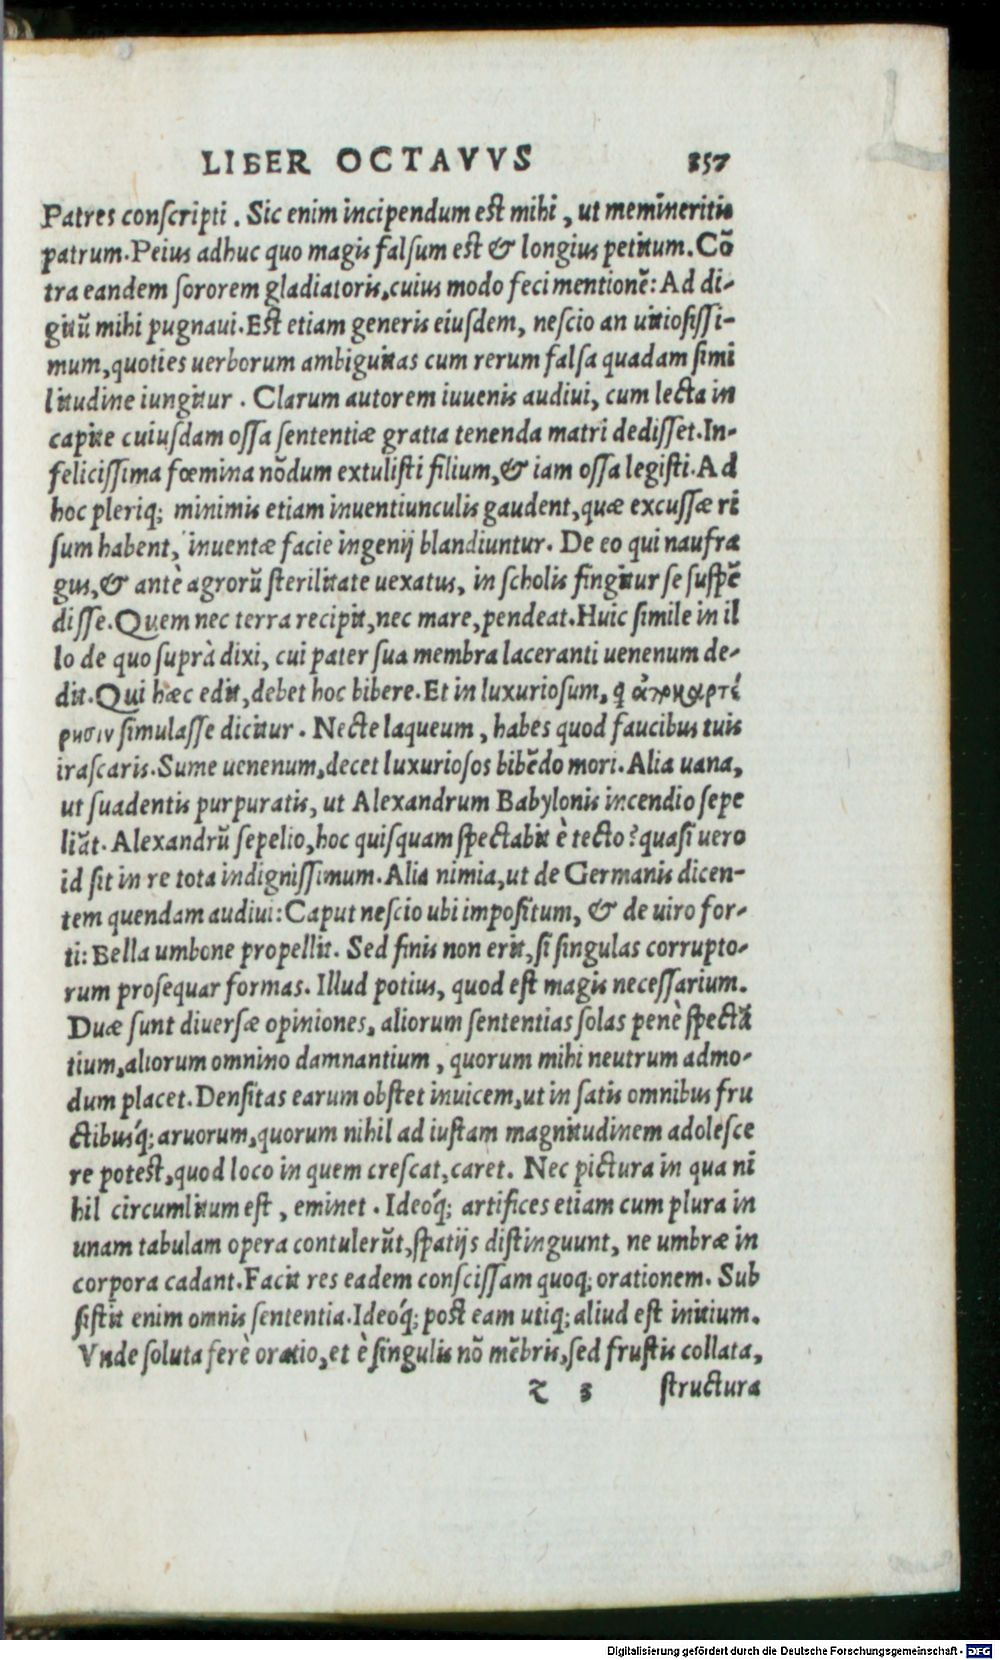 LIBER OCTAVVS 357
Patres conſcripti. Sic enim incipendum eſt mihi, ut memineritis
patrum. Peius adhuc quo magis falſum eſt & longius petitum. Cõ
tra eandem ſororem gladiatoris, cuius modo feci mentionẽ: Ad di-
gitũ mihi pugnaui. Eſt etiam generis eiuſdem, neſcio an uitioſiſſi-
mum, quoties uerborum ambiguitas cum rerum falſa quadam ſimi
litudine iungitur. Clarum autorem iuuenis audiui, cum lecta in
capite cuiuſdam oſſa ſententiæ gratta tenenda matri dediſſet. In-
feliciſſima fœmina nõdum extuliſti filium, & iam oſſa legiſti. Ad
hoc pleriq; minimis etiam inuentiunculis gaudent, quæ excuſſæ ri
ſum habent, inuentæ facie ingenij blandiuntur. De eo qui naufra
gus, & antè agrorũ ſterilitate uexatus, in ſcholis fingitur ſe ſuſpẽ
diſſe. Quem nec terra recipit, nec mare, pendeat. Huic ſimile in il
lo de quo ſuprà dixi, cui pater ſua membra laceranti uenenum de-
dit. Qui hæc edit, debet hoc bibere. Et in luxurioſum, q̃ ἀποκαρτέ
ρησιν ſimulaſſe dicitur. Necte laqueum, habes quod faucibus tuis
iraſcaris. Sume uenenum, decet luxurioſos bibẽdo mori. Alia uana,
ut ſuadentis purpuratis, ut Alexandrum Babylonis incendio ſepe
liãt. Alexandrũ ſepelio, hoc quiſquam ſpectabit è tecto? quaſi uero
id ſit in re tota indigniſſimum. Alia nimia, ut de Germanis dicen-
tem quendam audiui: Caput neſcio ubi impoſitum, & de uiro for-
ti: Bella umbone propellit. Sed finis non erit, ſi ſingulas corrupto-
rum proſequar formas. Illud potius, quod eſt magis neceſſarium.
Duæ ſunt diuerſæ opiniones, aliorum ſententias ſolas penè ſpectã
tium, aliorum omnino damnantium, quorum mihi neutrum admo-
dum placet. Denſitas earum obſtet inuicem, ut in ſatis omnibus fru
ctibusq́; aruorum, quorum nihil ad iuſtam magnitudinem adoleſce
re poteſt, quod loco in quem creſcat, caret. Nec pictura in qua ni
hil circumlitum eſt, eminet. Ideoq́; artifices etiam cum plura in
unam tabulam opera contulerũt, ſpatijs diſtinguunt, ne umbræ in
corpora cadant. Facit res eadem conſciſſam quoq; orationem. Sub
ſiſtit enim omnis ſententia. Ideoq́; poſt eam utiq; aliud eſt initium.
Vnde ſoluta ferè oratio, et è ſingulis nõ mẽbris, ſed fruſtis collata,
z 3 ſtructura
Digitalisierung gefördert durch die Deutsche Forschungsgemeinschaft - DFG